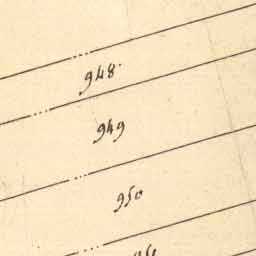 948.
949
950